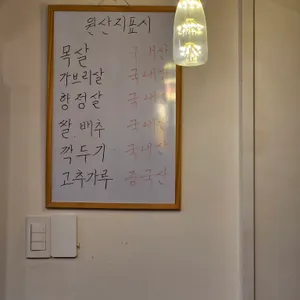 원산지표시
목살 국내산
가브리살 국내산
항정살 국내산
쌀, 배추 국내산
깍두기 국내산
고추가루 중국산